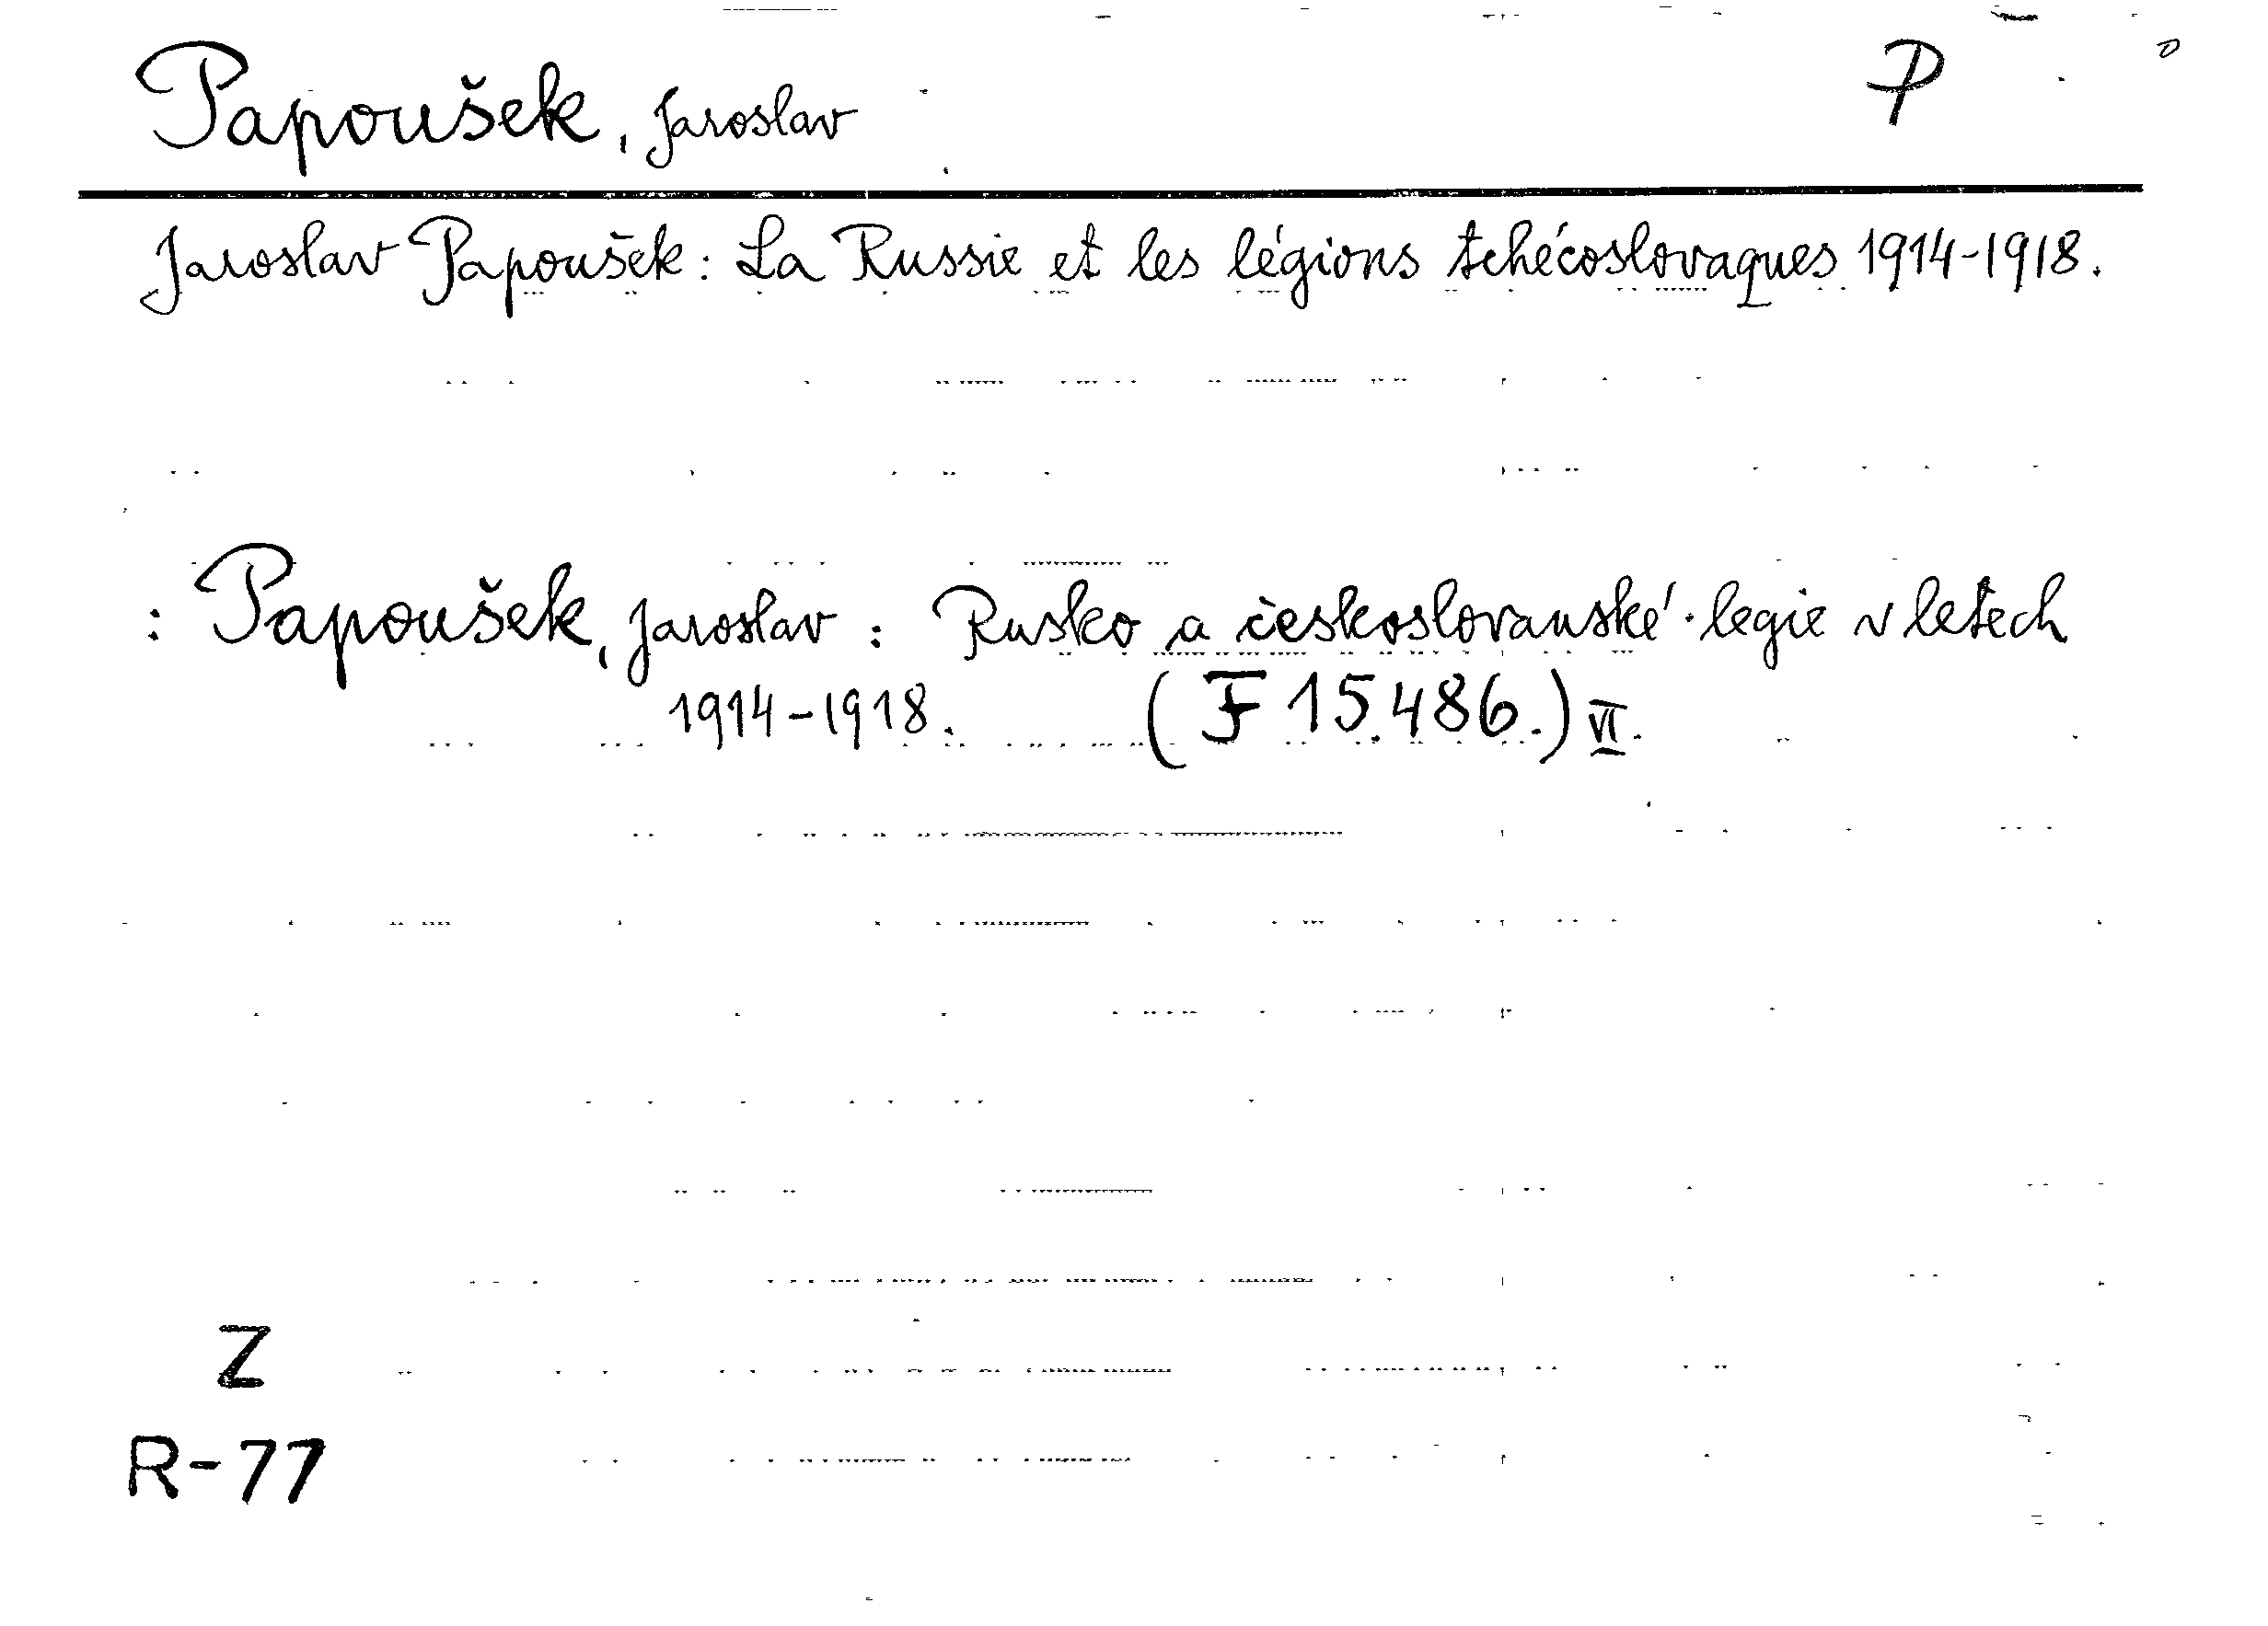 Papoušek, Jaroslav P
Jaroslav Papoušek: La Russie et les légions tchécoslovaques 1914-1918.
: Papoušek, Jaroslav : Rusko a československé legie v letech
1914-1918. (F 15.486.) VI.
Z
R-77